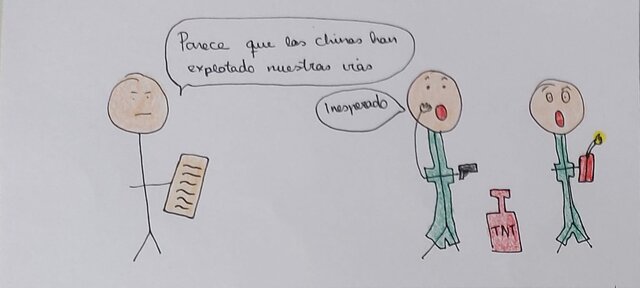 Parece que los chinos han
explotado nuestras vías
Inesperado
TNT